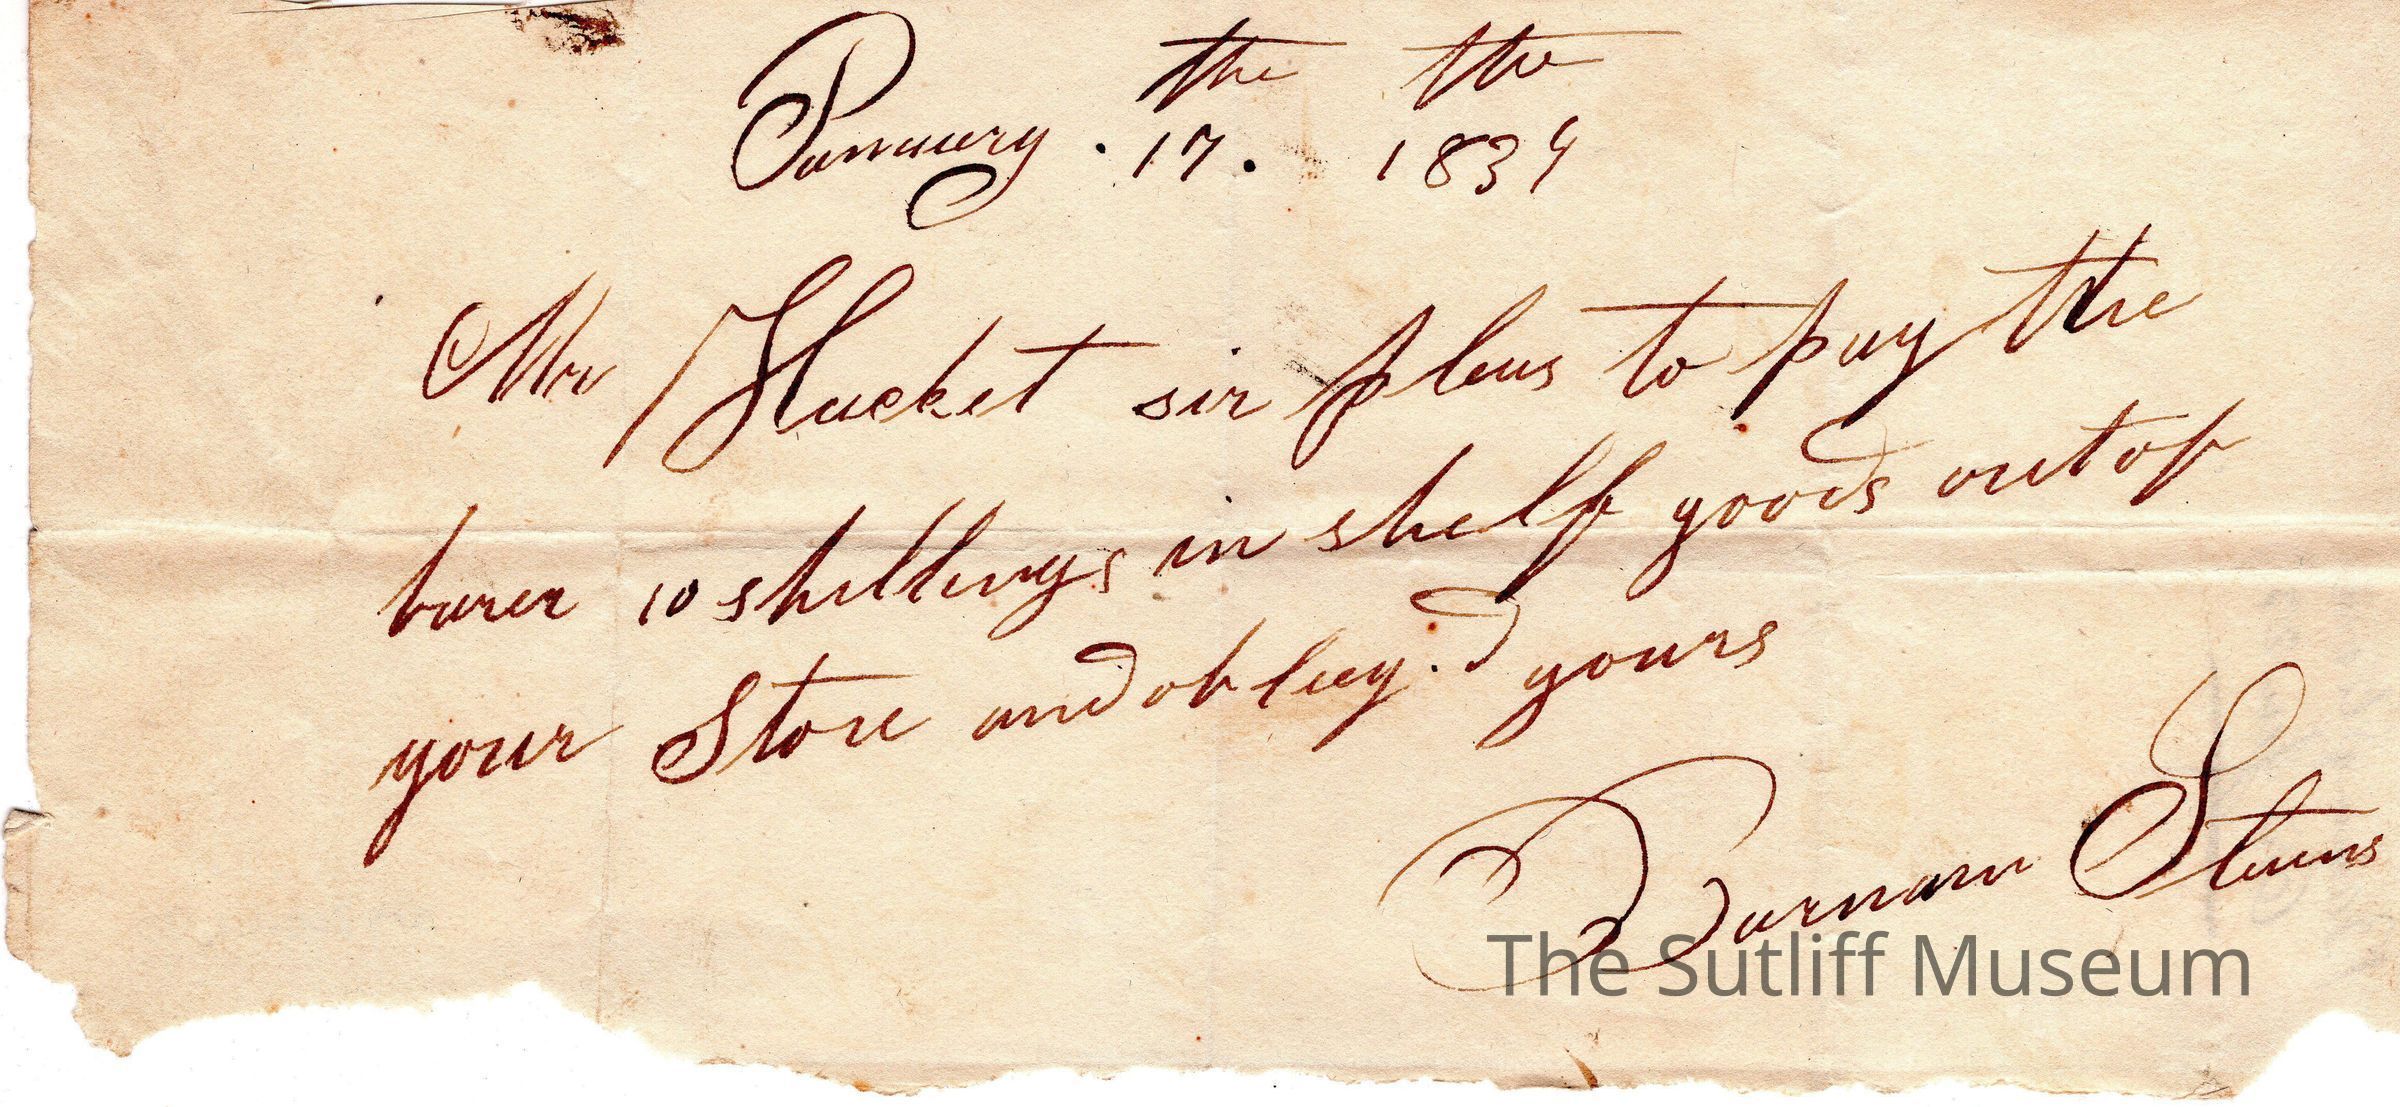 the the
January . 17 . 1834
Mr Hacket sir pleas to pay the
barer 10 shillings in shelf goods out of
your Store and obleeg. yours
Burnam Stevens
The Sutliff Museum